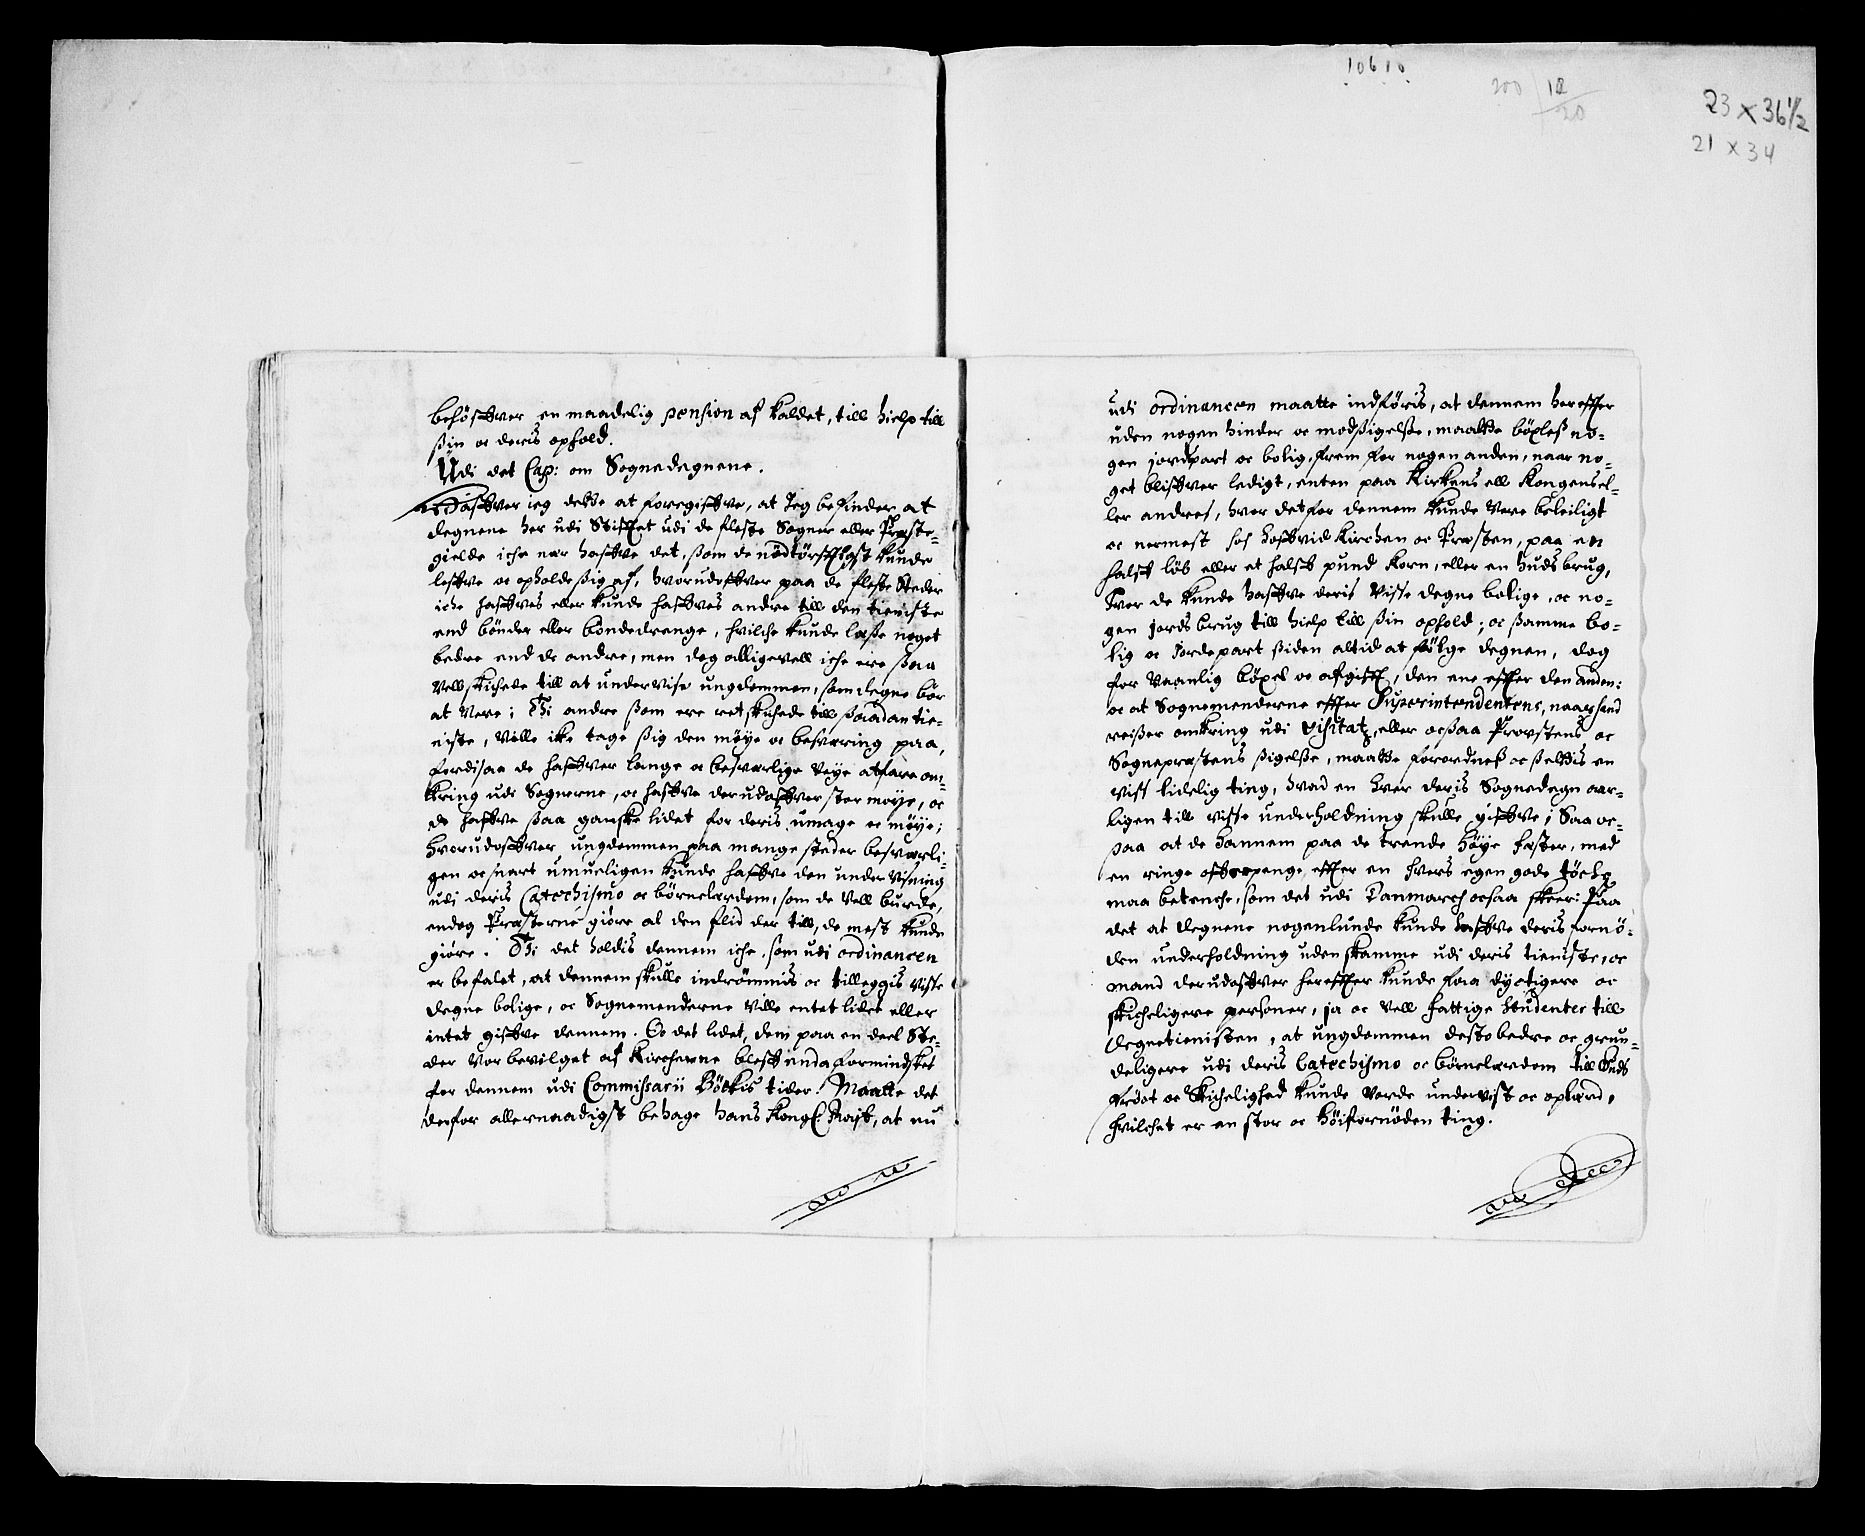 10610
200 | 10
20
23 x 36 1/2
21 x 34
behøffver en maadelig pension af kaldet, till hielp till
sßin oc deris ophold.
Udi det Cap: om Sognedegnene.
Haffver ieg dette at foregiffve, at Jeg befinder at
degnene her udi Stifftet udi de fleste Sogner eller Præste-
gielde iche nær haffve det, ßom de nødtørfftigst kunde
leffve oc opholde ßig af, hvorudoffver paa de fleste Steder
iche haffves eller kunde haffves andre till den tieniste
end bönder eller bondedrenge, hvilche kunde læße noget
bedre end de andre, men dog alligevell iche ere ßaa
vell skichede till at undervise ungdommen, som degne bör
at vere; Thi andre ßom ere ret skichede till ßaadan tie-
niste, ville ikke tage ßig den møye oc besværing paa,
fordi saa de haffver lange oc besværlige veye at fare om-
kring udi Sognerne, oc haffve derudoffver stor møye, oc
de haffve ßaa ganske lidet for deris umage oc møye;
hvorudoffver ungdommen paa mange steder besværli-
gen oc snart umueligen kunde haffve den undervisning
udi deris Catechismo oc börnelærdom, som de vell burde,
endog Præsterne giøre al den flid der till, de mest kunde
giøre. Thi det holdis dennem iche, som udi ordinancen
er befalet, at dennem skulle indrömmis oc tilleggis visse
degne bolige, oc Sognemenderne ville entet lidet eller
intet giffve dennem. Oc det lidet, dem paa en deel Ste-
der var bevilget af Kircherne bleff enda formindsket
for dennem udi Commissarii Böckis tider! Maatte det
derfor allernaadigst behage hans Kongl: Mayt, at nu
udi ordinancen maatte indføris, at dennem hereffter
uden nogen hinder oc modßigelße, maatte böxleß no-
gen jordpart oc bolig, frem for nogen anden, naar no-
get bliffver ledigt, enten paa Kirkens ell Kongens el-
ler andres, hvor det for dennem kunde vere beleiligt
oc nermest hoß hosßvid Kirchen oc Præsten, paa en
halff löb eller et halff pund Korn, eller en huds brug,
hvor de kunde haffve deris visse degne bolige, oc no-
gen jords brug till hielp till ßin ophold; oc ßamme bo-
lig oc Jordepart ßiden altid at fölge degnen, dog
for vaanlig böxel oc afgifft, den ene effter den anden:
oc at Sognemenderne effter Superintendentens, naar hand
reißer omkring udi visitatz, eller ocßaa Provstens oc
Sognepræstens ßigelße, maatte forordneß oc ßettis en
viss lidelig ting, hvad en hver deris Sognedegn aar-
ligen till visse underholdning skulle giffve; Saa oc-
saa at de hannem paa de trende høye fæster, med
en ringe offerpenge, effter en hvers egen gode töche
maa betenche, som det udi Danmarch ocsaa skeer: Paa
det at degnene nogenlunde kunde haffve deris fornö-
den underholdning uden skamme udi deris tieniste, oc
mand derudoffver hereffter kunde faa dyctigere oc
skicheligere personer, ja oc vell fattige Studenter till
degnetienisten, at ungdommen desto bedre oc grun-
deligere udi deris Catechismo oc börnelærdom till Guds
frÿct oc Skichelighed kunde vorde undervist oc oplærd,
hvilchet er en stor oc höifornöden ting.